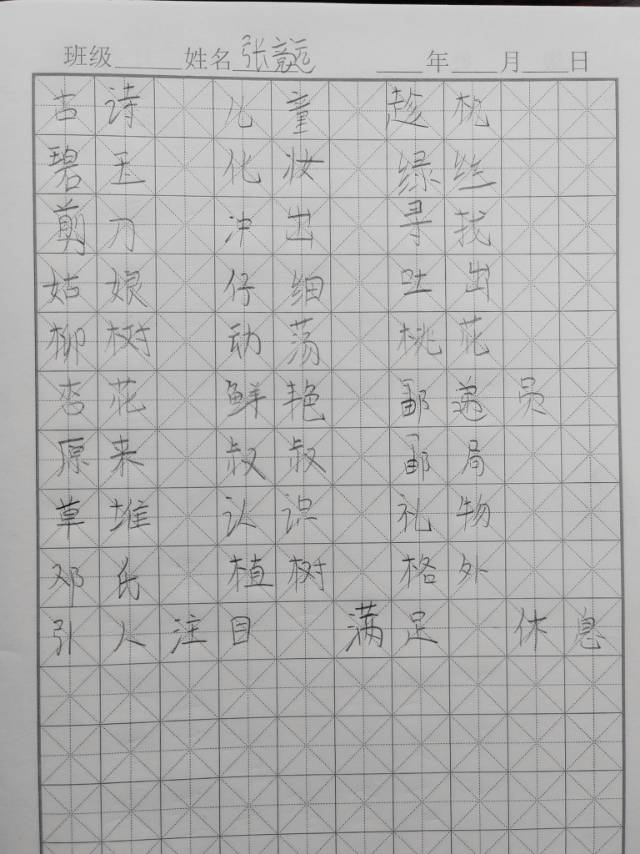 班级 姓名 张意远 年 月 日
古诗 儿童 趁忱
碧玉 化妆 绿丝
剪刀 冲出 寻找
姑娘 仔细 吐出
柳树 动荡 桃花
杏花 鲜艳 邮递员
原来 叔叔 邮局
草堆 认识 礼物
邓氏 植树 格外
引人注目 满足 休息